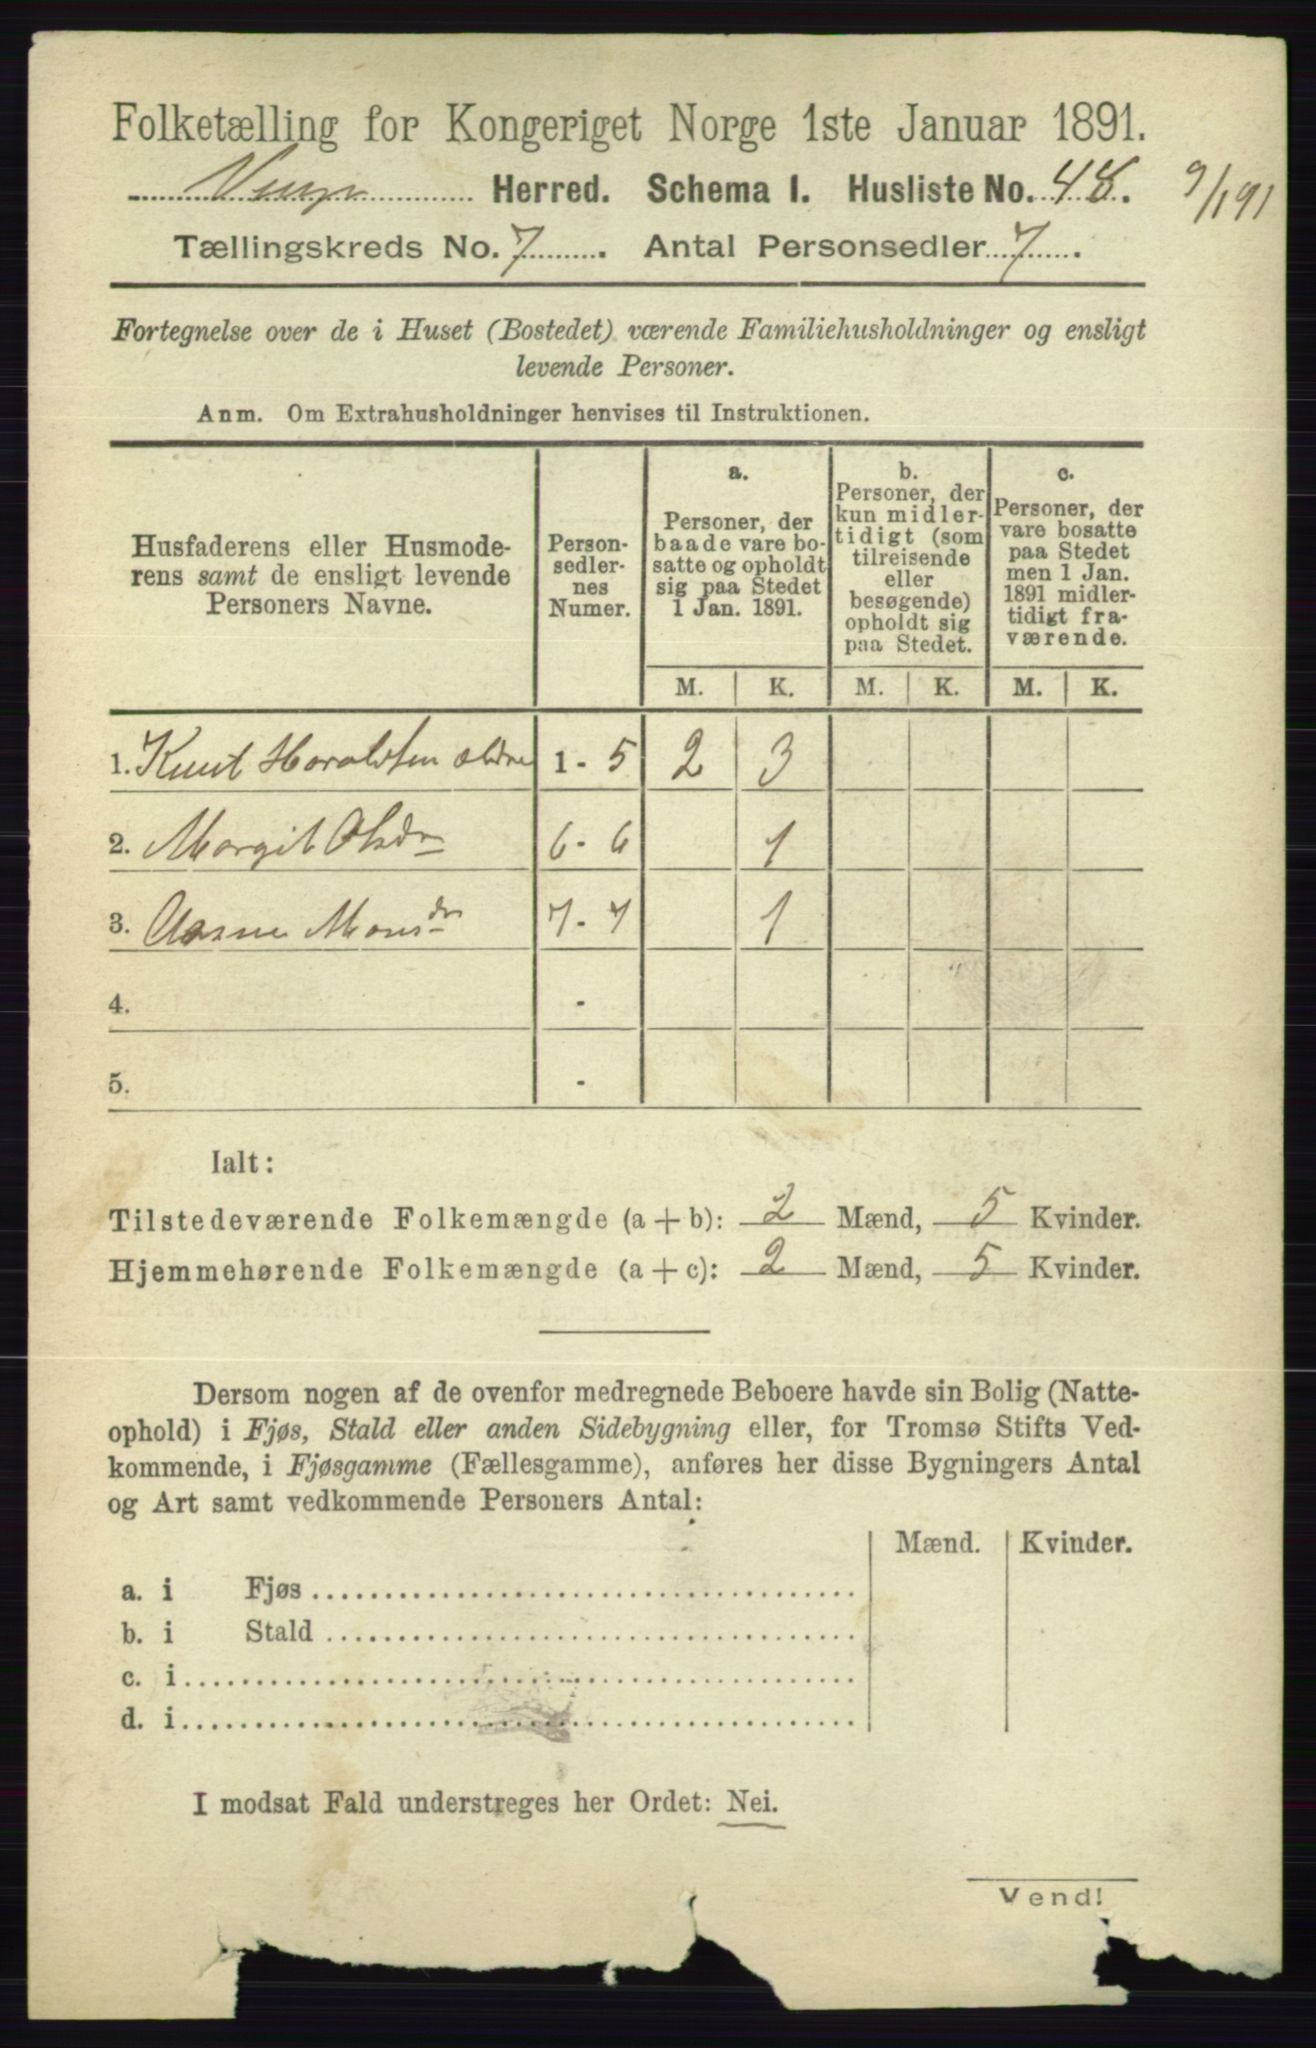 Folketælling for Kongeriget Norge 1ste Januar 1891.
Herred. Schema 1. Husliste No. 48. 9/1 91
Tællingskreds No. 7. Antal Personsedler 7.
Fortegnelse over de i Huset (Bostedet) værende Familiehusholdninger og ensligt
levende Personer.
Anm. Om Extrahusholdninger henvises til Instruktionen.
Husfaderens eller Husmode-
rens samt de ensligt levende
Personers Navne.
Person-
sedler-
nes
Numer.
a.
Personer, der
baade vare bo-
satte og opholdt
sig paa Stedet
1 Jan. 1891.
b.
Personer, der
kun midler-
tidigt (som
tilreisende
eller
besøgende)
opholdt sig
paa Stedet.
c.
Personer, der
vare bosatte
paa Stedet
men 1 Jan.
1891 midler-
tidigt fra-
værende.
M. K. M. K. M. K.
1. Knut Haraldsen ældre 1 - 5 2 3
2. Margit Olsdr 6 - 6 1
3. Aasne Monsdr 7 - 7 1
4. -
5. -
Ialt:
Tilstedeværende Folkemængde (a + b): 2 Mænd, 5 Kvinder.
Hjemmehørende Folkemængde (a + c): 2 Mænd, 5 Kvinder.
Dersom nogen af de ovenfor medregnede Beboere havde sin Bolig (Natte-
ophold) i Fjøs, Stald eller anden Sidebygning eller, for Tromsø Stifts Ved-
kommende, i Fjøsgamme (Fællesgamme), anføres her disse Bygningers Antal
og Art samt vedkommende Personers Antal:
Mænd. Kvinder.
a. i Fjøs
b. i Stald
c. i
d. i
I modsat Fald understreges her Ordet: Nei.
Vend!